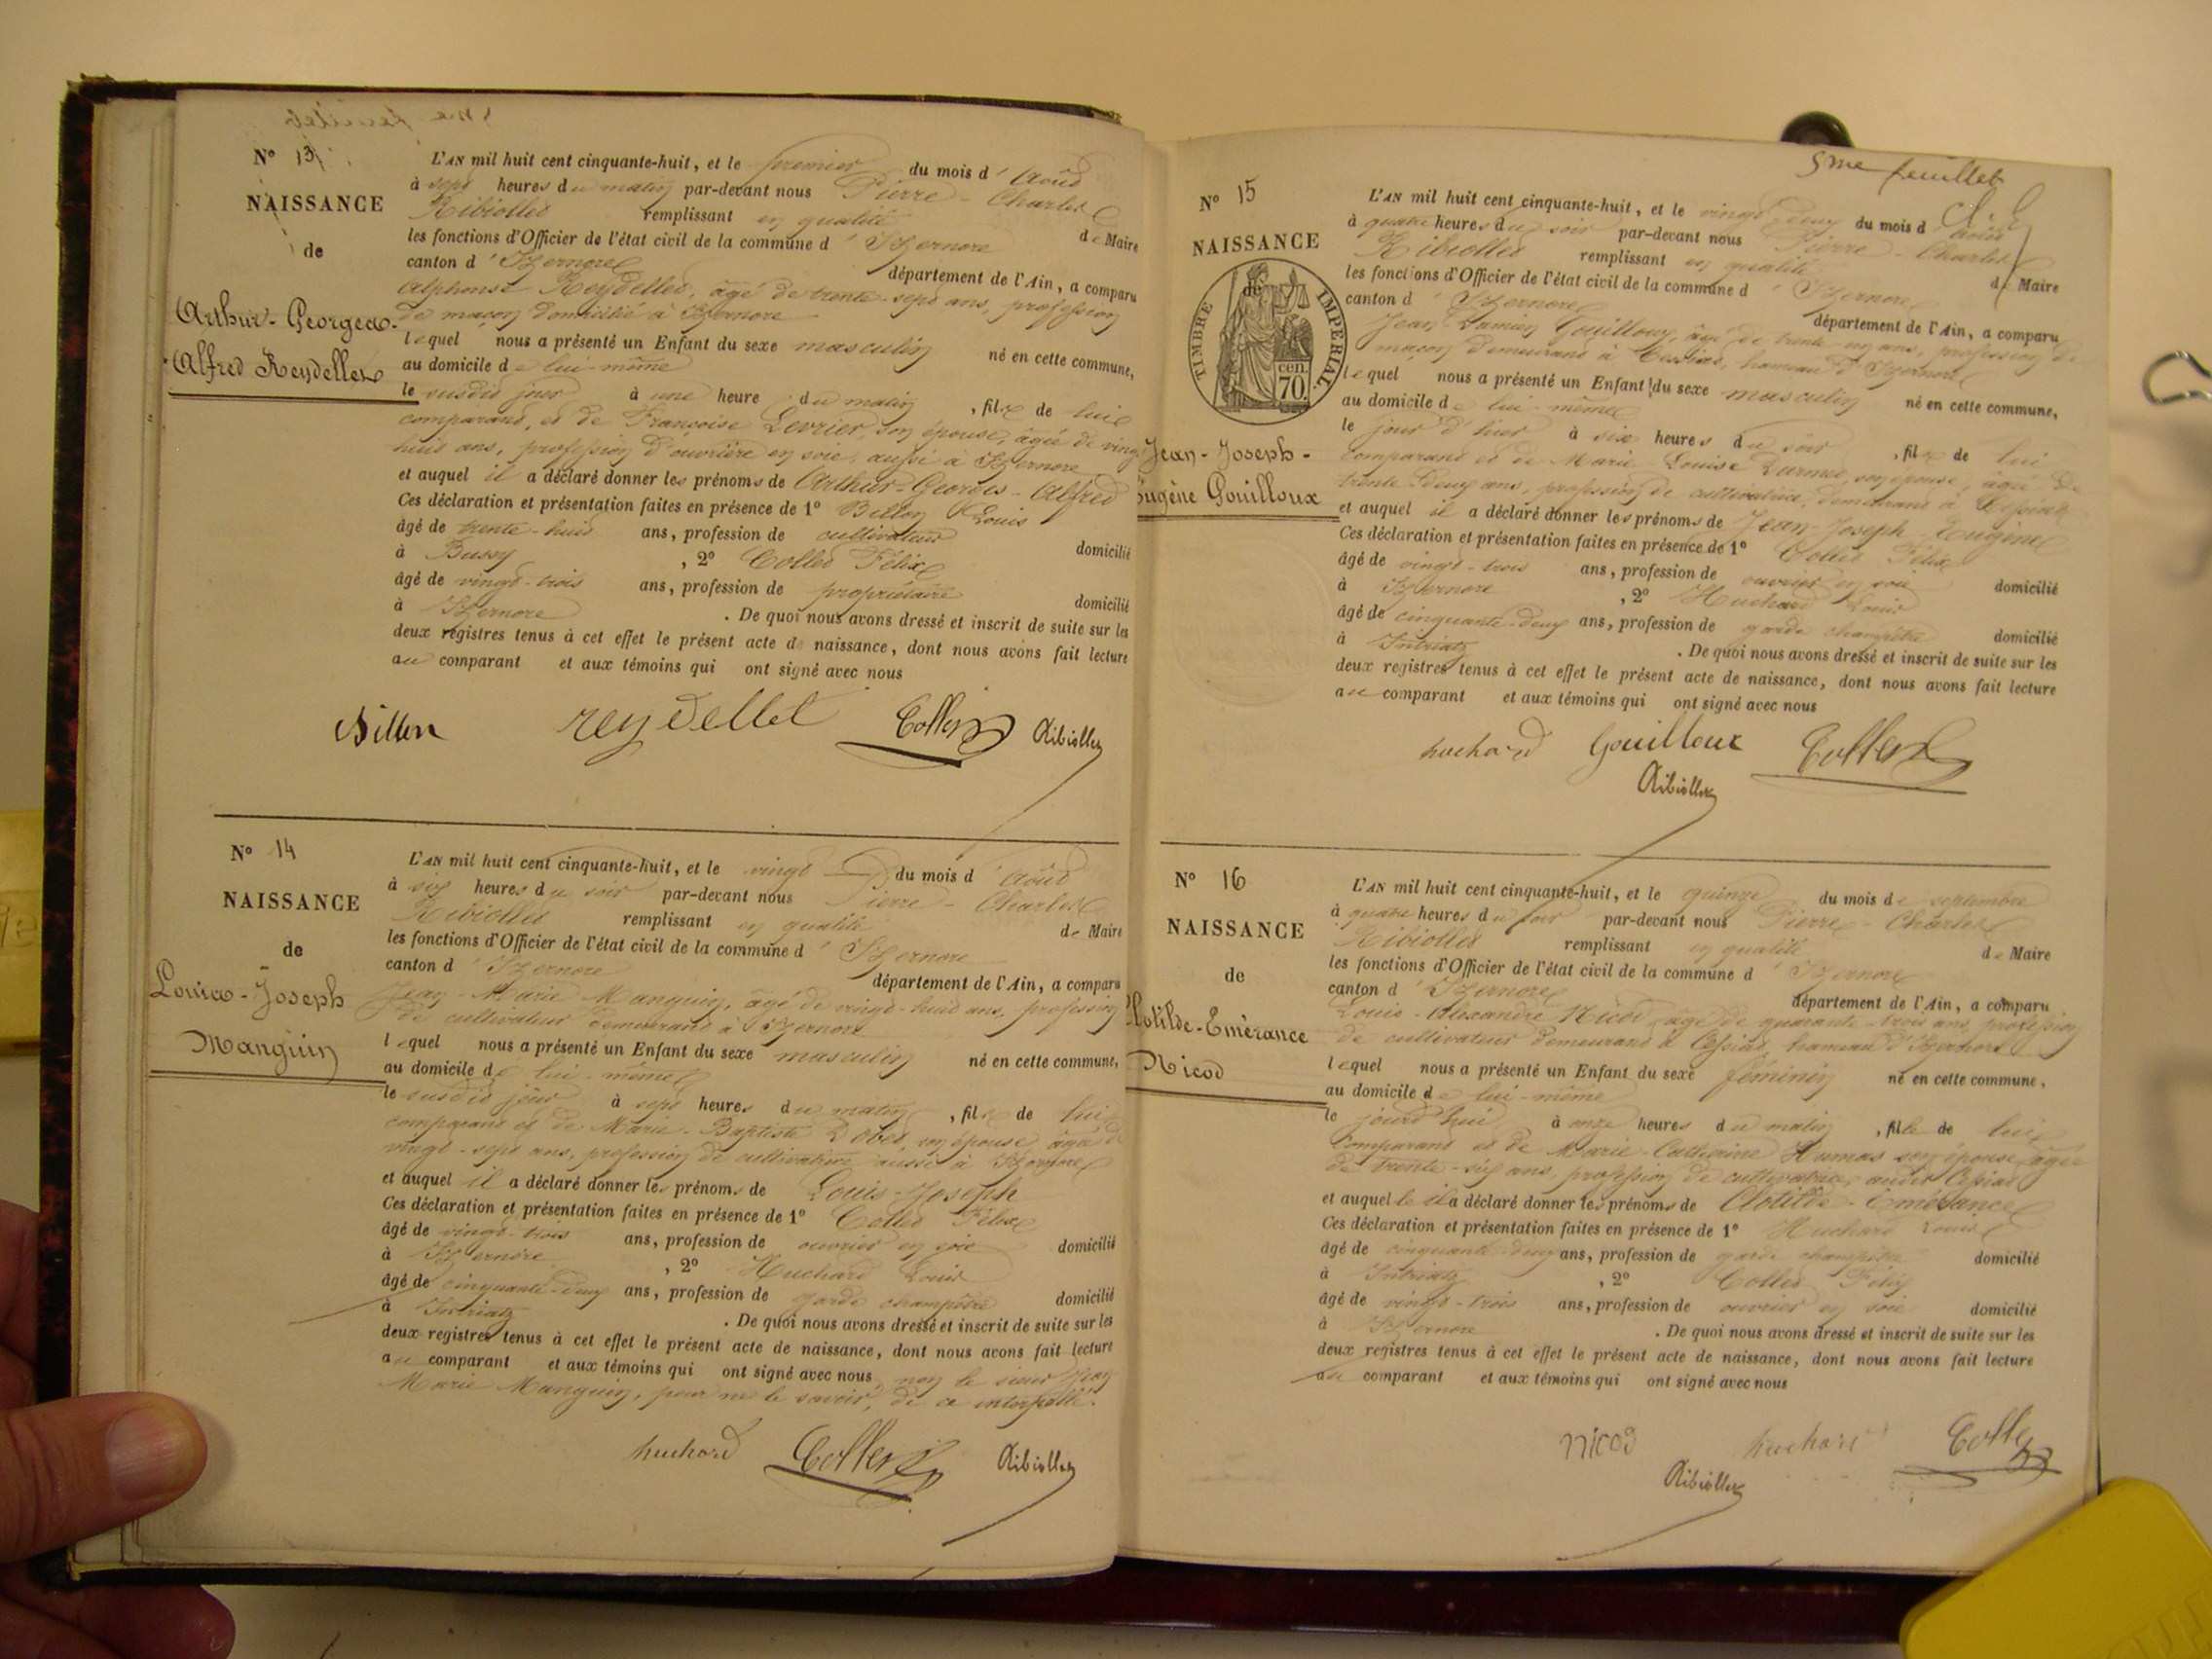 5me feuillet
N° 13
NAISSANCE
de
Arthur-Georges-
Alfred Reydellet
L'AN mil huit cent cinquante-huit, et le premier du mois d'Août
à sept heures du matin par-devant nous Pierre-Charles
Ribiollet remplissant en qualité de Maire
les fonctions d'Officier de l'état civil de la commune d'Izernore
canton d'Izernore département de l'Ain, a comparu
Alphonse Reydellet, âgé de trente-sept ans, profession
de maçon domicilié à Izernore
lequel nous a présenté un Enfant du sexe masculin né en cette commune,
au domicile de lui-même
le susdit jour à une heure du matin, fils de lui
comparant, et de Françoise Levrier, son épouse, âgée de vingt
huit ans, profession d'ouvrière en soie, aussi à Izernore
et auquel il a déclaré donner les prénoms de Arthur-Georges-Alfred
Ces déclaration et présentation faites en présence de 1° Billon Louis
âgé de trente-huit ans, profession de cultivateur domicilié
à Bussy, 2° Collet Félix
âgé de vingt-trois ans, profession de propriétaire domicilié
à Izernore. De quoi nous avons dressé et inscrit de suite sur les
deux registres tenus à cet effet le présent acte de naissance, dont nous avons fait lecture
au comparant et aux témoins qui ont signé avec nous
Billon reydellet Collet Ribiollet
N° 14
NAISSANCE
de
Louis-Joseph
Manguin
L'AN mil huit cent cinquante-huit, et le vingt du mois d'Août
à six heures du soir par-devant nous Pierre-Charles
Ribiollet remplissant en qualité de Maire
les fonctions d'Officier de l'état civil de la commune d'Izernore
canton d'Izernore département de l'Ain, a comparu
Jean-Marie Manguin, âgé de vingt-huit ans, profession
de cultivateur demeurant à Izernore
lequel nous a présenté un Enfant du sexe masculin né en cette commune,
au domicile de lui-même
le susdit jour à sept heures du matin, fils de lui
comparant et de Marie-Baptiste son épouse âgée de
vingt-sept ans, profession de cultivatrice aussi à Izernore
et auquel il a déclaré donner les prénoms de Louis-Joseph
Ces déclaration et présentation faites en présence de 1° Collet Félix
âgé de vingt-trois ans, profession de ouvrier en soie domicilié
à Izernore, 2° Huchard Louis
âgé de cinquante-deux ans, profession de garde champêtre domicilié
à Intriatz. De quoi nous avons dressé et inscrit de suite sur les
deux registres tenus à cet effet le présent acte de naissance, dont nous avons fait lecture
au comparant et aux témoins qui ont signé avec nous non le sieur Jean
Marie Manguin, pour ne le savoir, de ce interpellé.
huchard Collet Ribiollet
5me feuillet
N° 15
NAISSANCE
de
TIMBRE IMPERIAL
70 cen.
Jean-Joseph-
Eugène Gouilloux
L'AN mil huit cent cinquante-huit, et le vingt-deux du mois d'Août
à quatre heures du soir par-devant nous Pierre-Charles
Ribiollet remplissant en qualité de Maire
les fonctions d'Officier de l'état civil de la commune d'Izernore
canton d'Izernore département de l'Ain, a comparu
Jean Damien Gouilloux, âgé de trente-un ans, profession de
maçon demeurant à Cessiat, hameau d'Izernore
lequel nous a présenté un Enfant du sexe masculin né en cette commune,
au domicile de lui-même
le jour d'hier à six heures du soir, fils de lui
comparant et de Marie-Louise son épouse, âgée de
trente-deux ans, profession de cultivatrice, demeurant à
et auquel il a déclaré donner les prénoms de Jean-Joseph-Eugène
Ces déclaration et présentation faites en présence de 1° Collet Félix
âgé de vingt-trois ans, profession de ouvrier en soie domicilié
à Izernore, 2° Huchard Louis
âgé de cinquante-deux ans, profession de garde champêtre domicilié
à Intriatz. De quoi nous avons dressé et inscrit de suite sur les
deux registres tenus à cet effet le présent acte de naissance, dont nous avons fait lecture
au comparant et aux témoins qui ont signé avec nous
huchard Gouilloux Collet
Ribiollet
N° 16
NAISSANCE
de
Clotilde-Emérance
Nicod
L'AN mil huit cent cinquante-huit, et le quinze du mois de septembre
à quatre heures du soir par-devant nous Pierre-Charles
Ribiollet remplissant en qualité de Maire
les fonctions d'Officier de l'état civil de la commune d'Izernore
canton d'Izernore département de l'Ain, a comparu
Louis-Alexandre Nicod, âgé de quarante-trois ans, profession
de cultivateur demeurant à Cessiat hameau d'Izernore
lequel nous a présenté un Enfant du sexe féminin né en cette commune,
au domicile de lui-même
le jourd'hui à onze heures du matin, fille de lui
comparant et de Marie-Catherine Humas son épouse âgée
de trente-six ans, profession de cultivatrice, audit Cessiat
et auquel le il a déclaré donner les prénoms de Clotilde-Emérance
Ces déclaration et présentation faites en présence de 1° Huchard Louis
âgé de cinquante-deux ans, profession de garde champêtre domicilié
à Intriatz, 2° Collet Félix
âgé de vingt-trois ans, profession de ouvrier en soie domicilié
à Izernore. De quoi nous avons dressé et inscrit de suite sur les
deux registres tenus à cet effet le présent acte de naissance, dont nous avons fait lecture
au comparant et aux témoins qui ont signé avec nous
Nicod huchard Collet
Ribiollet